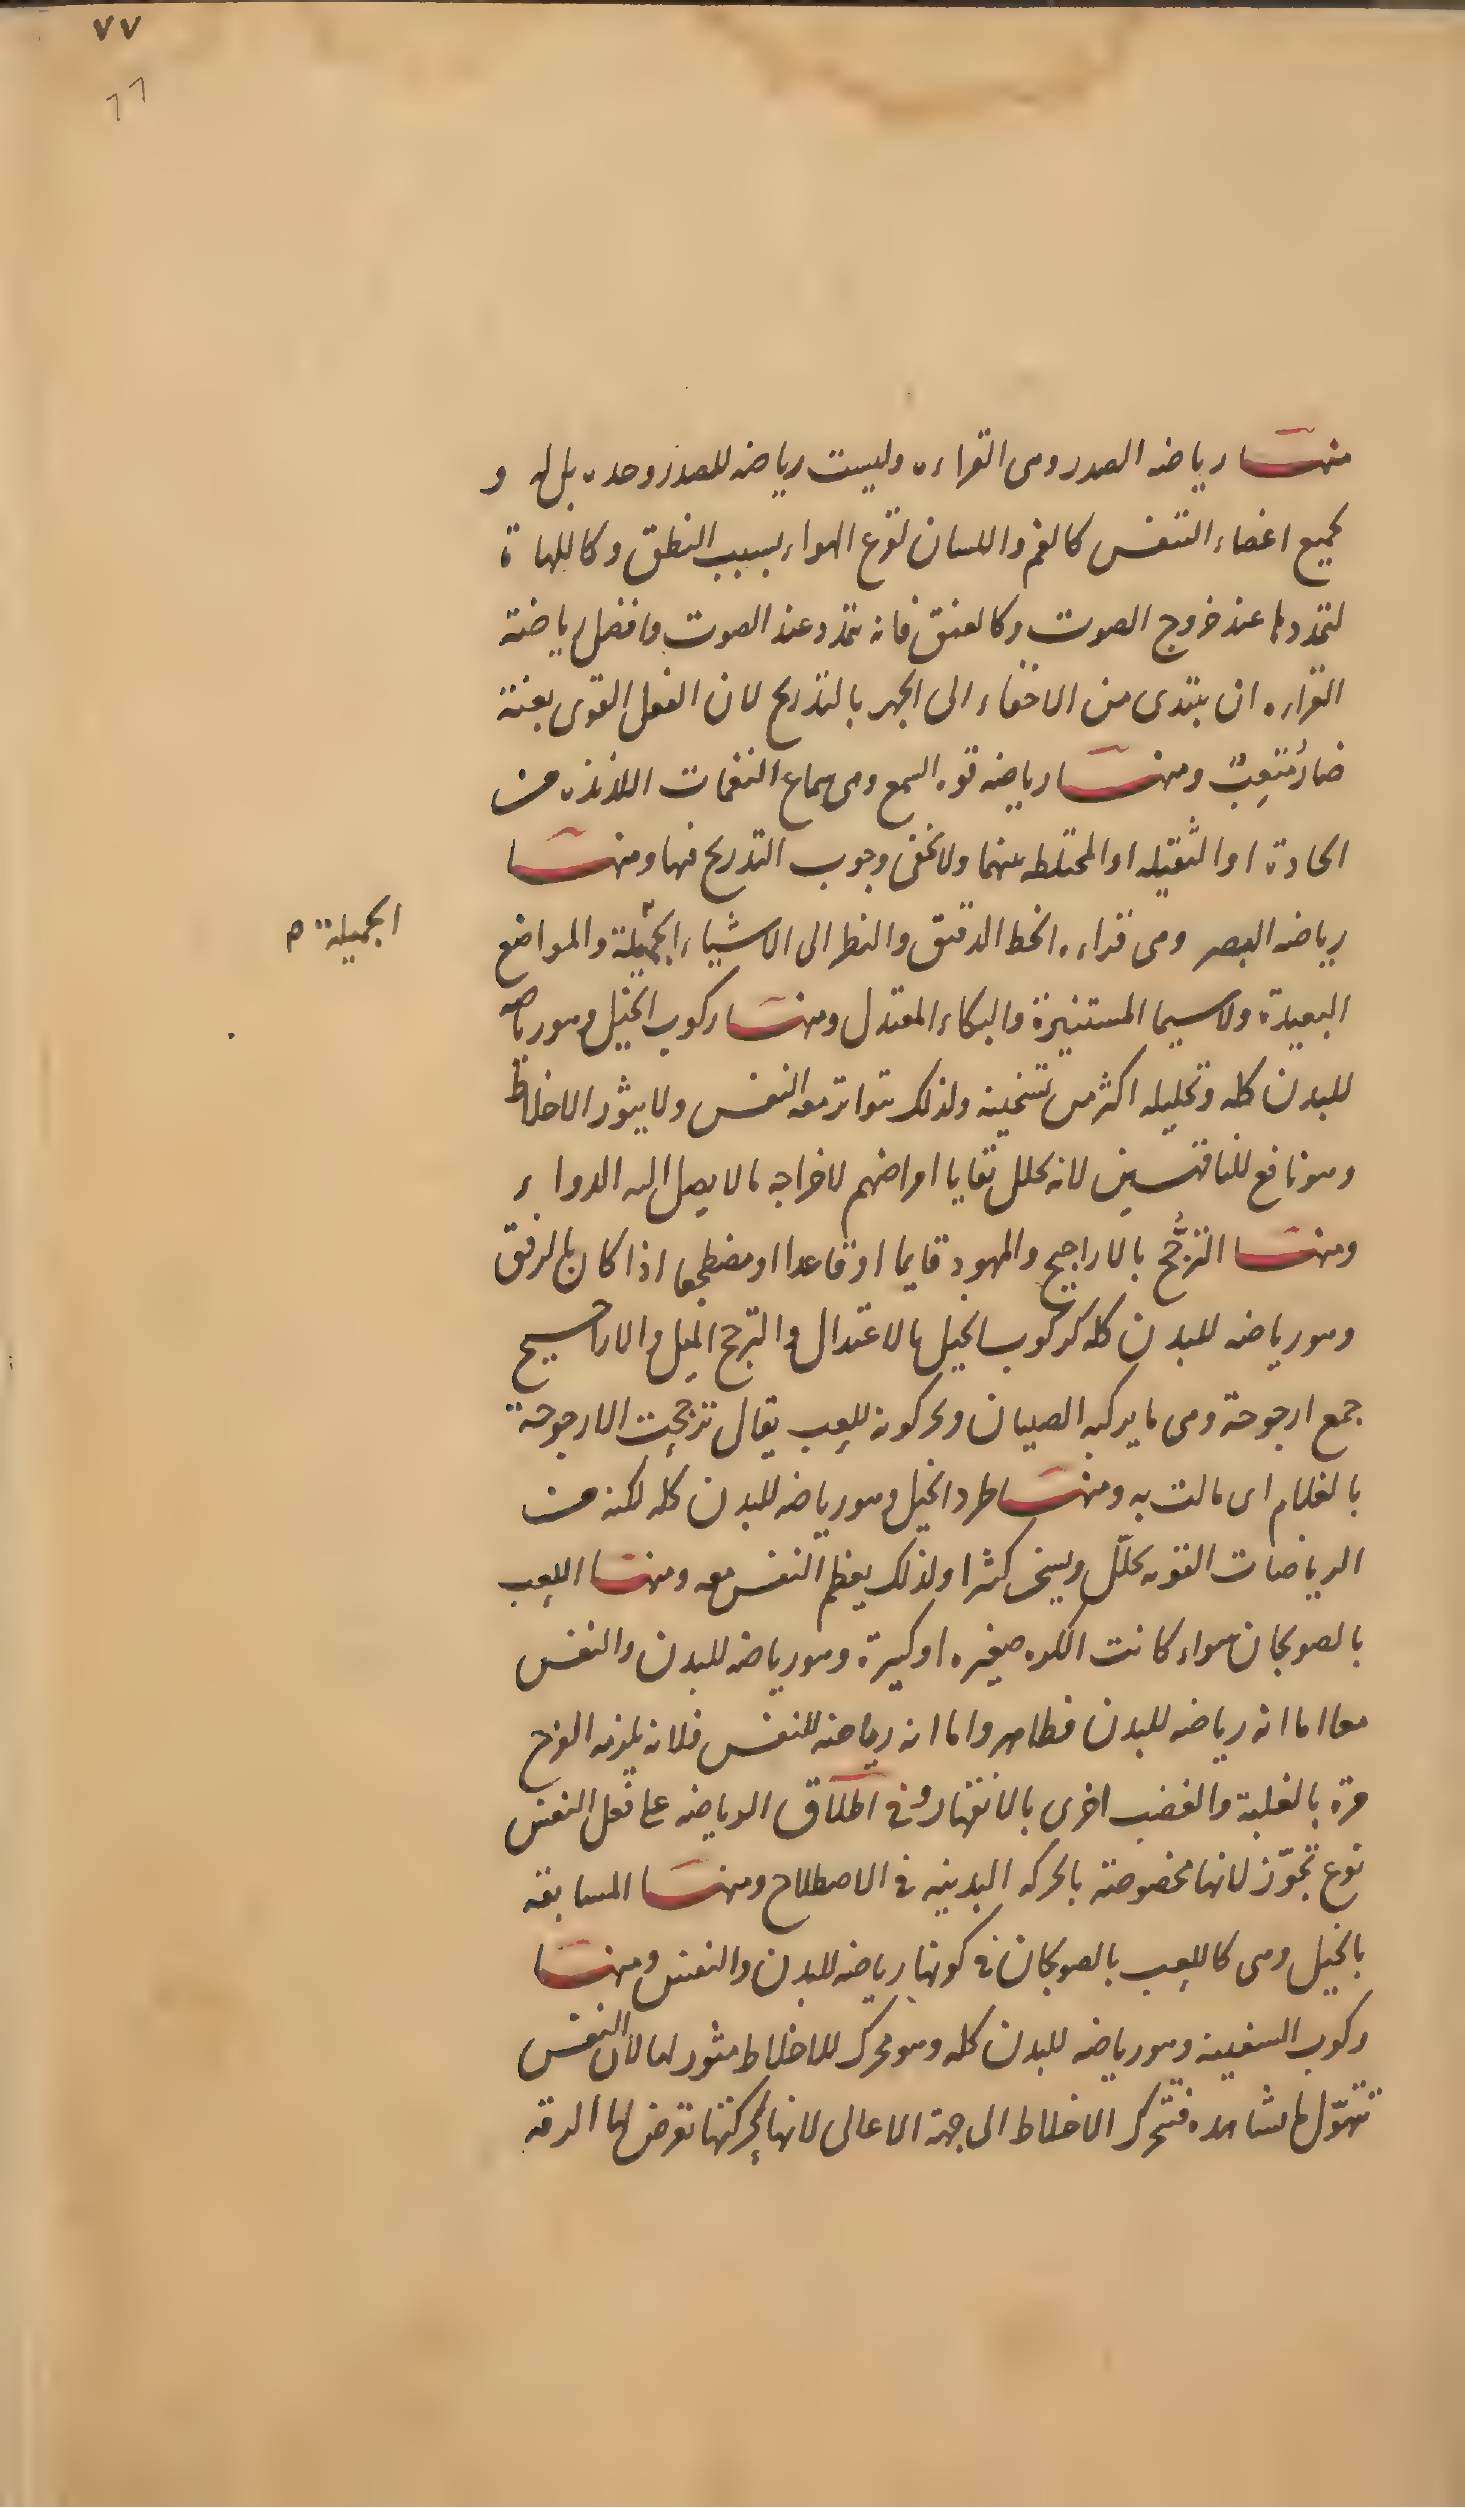 ٧٧
77
منها رياضه الصدر وهى القراءه وليست رياضه للصدر وحده بل له و
لجميع اعضاء التنفس كالفم واللسان لقرع الهواء بسبب النطق وكاللهاة
لتمددها عند خروج الصوت وكالعنق فانه يتمدد عند الصوت وافضل رياضة
القراءه ان يبتدى من الاخفاء الى الجهر بالتدريج لان الفعل القوى بغتة
ضارٌ متعِبٌ ومنها رياضه قوه السمع وهى سماع النغمات اللذيذه من
الحادة او الثقيله او المختلطه منهما ولا يخفى وجوب التدريج فيها ومنها
رياضه البصر وهى قراءه الخط الدقيق والنظر الى الاشياء الجميلة والمواضع
الجميلة م
البعيدة ولا سيما المستنيرة والبكاء المعتدل ومنها ركوب الخيل وهو رياضه
للبدن كله وتحليله اكثر من تسخينه ولذلك يتواتر معه النفس ولا يثور الاخلاط
وهو نافع للناقهين لانه يحلل بقايا امراضهم لاخراجه مالا يصل اليه الدواء
ومنها الترجُّح بالاراجيح والمهود قايما او قاعدا او مضطجعا اذا كان بالرفق
وهو رياضه للبدن كله كركوب الخيل بالاعتدال والترجح الميل والاراجيح
جمع ارجوحة وهى ما يركبه الصبيان ويحركونه للعِب يقال ترجحت الارجوحة
بالغلام اى مالت به ومنها طرد الخيل وهو رياضه للبدن كله لكنه من
الرياضات القويه يحلّل ويسخن كثيرا ولذلك يعظم النفس معه ومنها اللعِب
بالصولجان سواء كانت الكره صغيره او كبيرة وهو رياضه للبدن والنفس
معا اما انه رياضه للبدن فظاهر واما انه رياضه للنفس فلانه يلزمه الفرح
مرة بالغلبة والغضب اخرى بالانقهار وفى اطلاق الرياضه على فعل النفس
نوع تجوّز لانها مخصوصة بالحركه البدنيه فى الاصطلاح ومنها المسابقة
بالخيل وهى كاللعِب بالصولجان فى كونها رياضه للبدن والنفس ومنها
ركوب السفينه وهو رياضه للبدن كله وهو محرك للاخلاط مثور لها لان النفس
تتهوّل لما تشاهده فتتحرك الاخلاط الى جهة الاعالى لانها لحركتها تعرض لها الرقه